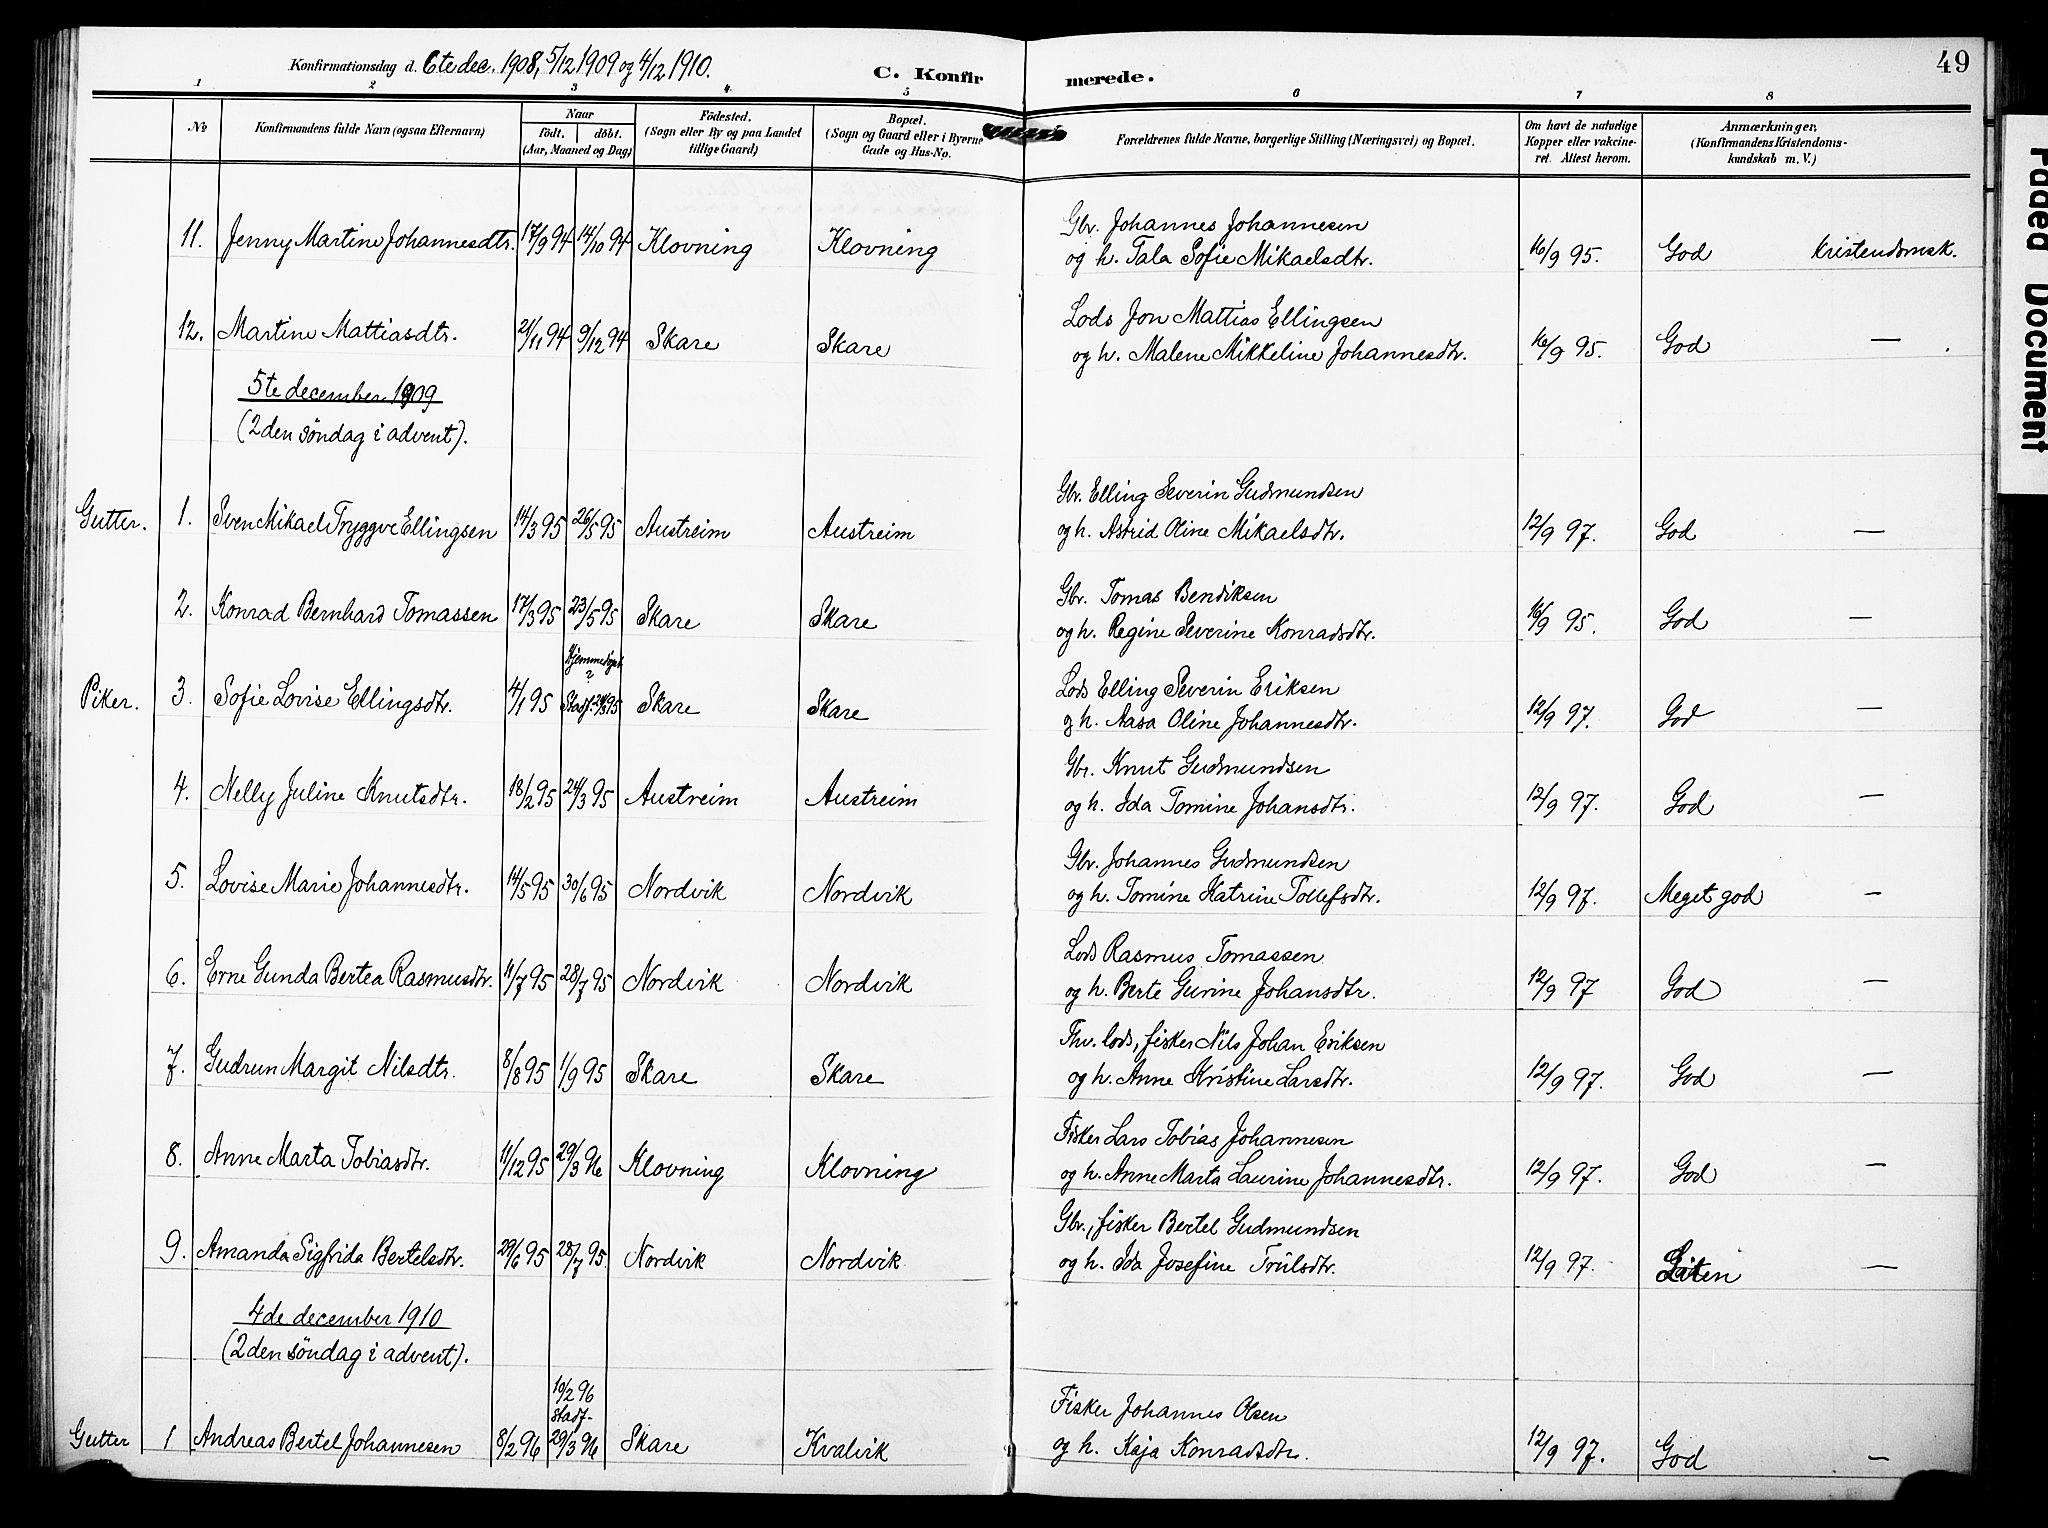 Konfirmationsdag d. 6te dec. 1908, 5/12 1909 og 4/12 1910. C. Konfirmerede. 49
1 2 3 4. 5 6 7 8
No Konfirmandens fulde Navn (ogsaa Efternavn) Naar født. døbt. (Aar, Maaned og Dag) Fødested. (Sogn eller By og paa Landet tillige Gaard) Bopæl. (Sogn og Gaard eller i Byerne Gade og Hus-No. Forældrenes fulde Navne, borgerlige Stilling (Næringsvei) og Bopæl. Om havt de naturlige Kopper eller vakcineret. Attest herom. Anmærkninger, (Konfirmandens Kristendomskundskab m. V.)
Gbr. Johannes Johannesen
11. Jenny Martine Johannesdtr. 17/9 94 14/10 94 Klovning Klovning og h. Tala Sofie Mikaelsdtr. 16/9 95. God Kristendomsk.
Lods Jon Mattias Ellingsen
12. Martine Mattiasdtr. 21/11 94 9/12 94 Skare Skare og h. Malene Mikkeline Johannesdtr. 16/9 95. God —
5te december 1909
(2den søndag i advent).
Gbr. Elling Severin Gudmundsen
Gutter. 1. Sven Mikael Tryggve Ellingsen 14/3 95 26/5 95 Austreim Austreim og h. Astrid Oline Mikaelsdtr. 12/9 97. God —
Gbr. Tomas Bendiksen
2. Konrad Bernhard Tomassen 17/3 95 23/5 95 Skare Skare og h. Regine Severine Konradsdtr. 16/9 95. God —
Hjemmedøpt
? Lods Elling Severin Eriksen
Piker. 3. Sofie Lovise Ellingsdtr. 4/1 95 Stadf. 24/3 95 Skare Skare og h. Aasa Oline Johannesdtr. 12/9 97. God —
Gbr. Knut Gudmundsen
4. Nelly Juline Knutsdtr. 18/2 95 24/3 95 Austreim Austreim og h. Ida Tomine Johansdtr. 12/9 97. God —
Gbr. Johannes Gudmundsen
5. Lovise Marie Johannesdtr. 14/5 95 30/6 95 Nordvik Nordvik og h. Tomine Katrine Tollefsdtr. 12/9 97. Meget god —
Lods Rasmus Tomassen
6. Erne Gunda Bertea Rasmusdtr. 11/7 95 28/7 95 Nordvik Nordvik og h. Berte Gurine Johansdtr. 12/9 97 God —
Thv. lods, fisker Nils Johan Eriksen
7. Gudrun Margit Nilsdtr. 8/8 95 1/9 95 Skare Skare og h. Anne Kristine Larsdtr. 12/9 97. God —
Fisker Lars Tobias Johannesen
8. Anne Marta Tobiasdtr. 11/12 95 29/3 96 Klovning Klovning og h. Anne Marta Laurine Johannesdtr. 12/9 97. God —
Gbr., fisker Bertel Gudmundsen
9. Amanda Sigfrida Bertelsdtr. 29/6 95 28/7 95. Nordvik Nordvik og h. Ida Josefine Trulsdtr. 12/9 97. Liten —
4de december 1910
(2den søndag i advent).
10/2 96
Stadf- Fisker Johannes Olsen
Gutter 1 Andreas Bertel Johannesen 8/2 96 29/3 96 Skare Kvalvik og h. Kaja Konradsdtr. 12/9 97. God —
Faded Document